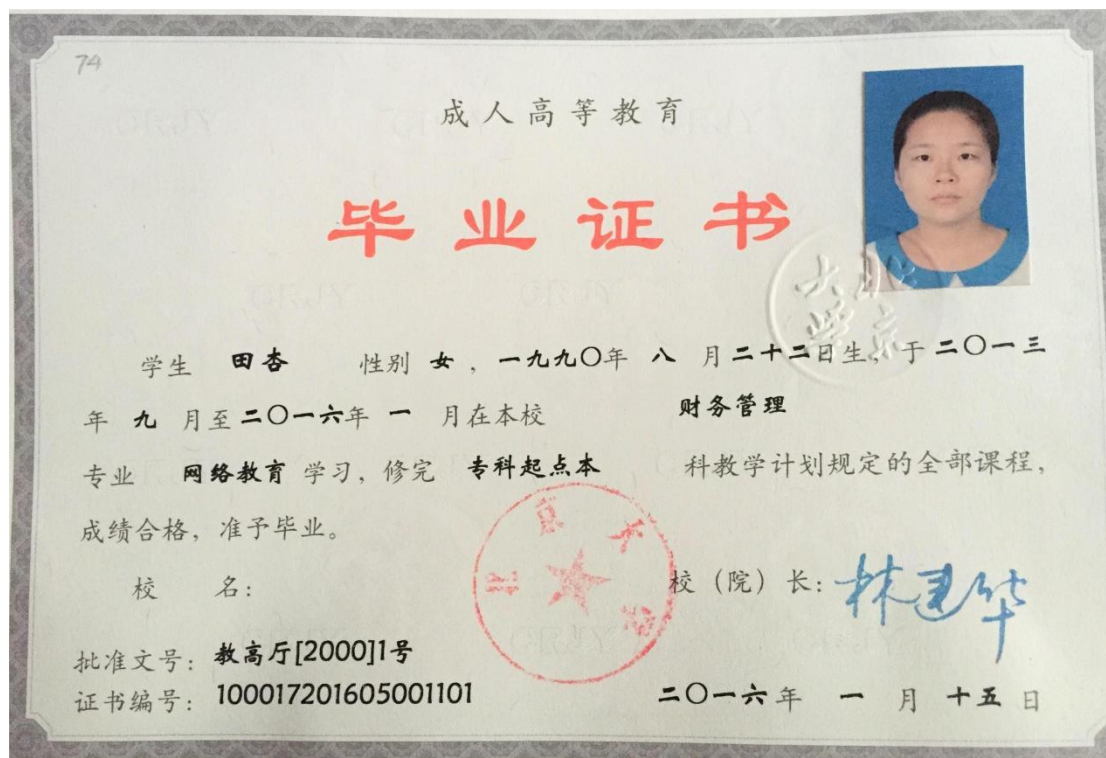 74
成人高等教育
毕业证书
北京大学
学生 田杏 性别 女 , 一九九〇年 八 月二十二日生, 于二〇一三
年 九 月至二〇一六年 一 月在本校 财务管理
专业 网络教育 学习, 修完 专科起点本 科教学计划规定的全部课程,
成绩合格, 准予毕业。
北京大学
校 名: 校（院）长: 林建华
批准文号: 教高厅[2000]1号
证书编号: 100017201605001101 二〇一六年 一 月 十五 日